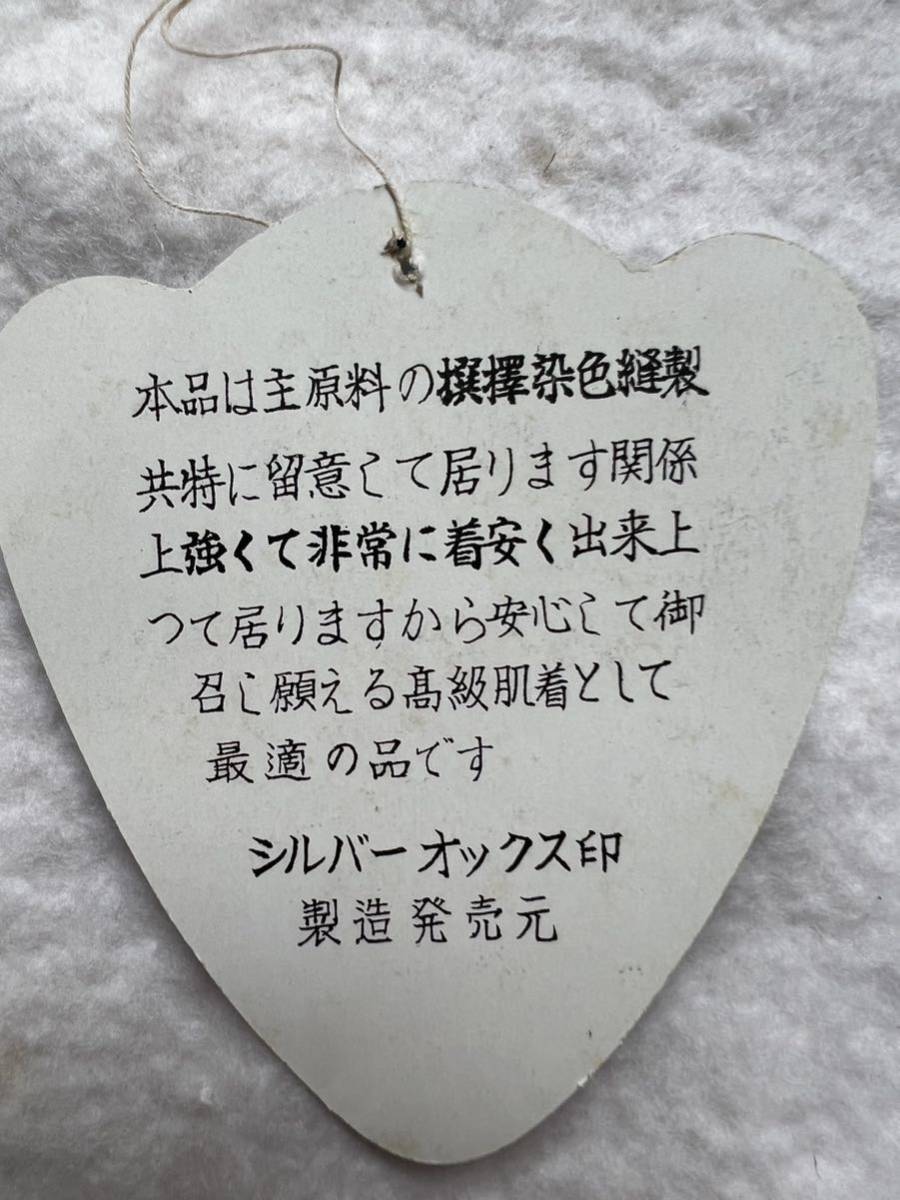 本品は主原料の撰擇染色縫製
共特に留意して居ります関係
上強くて非常に着安く出来上
つて居りますから安心して御
召し願える髙級肌着として
最適の品です
シルバーオックス印
製造発売元